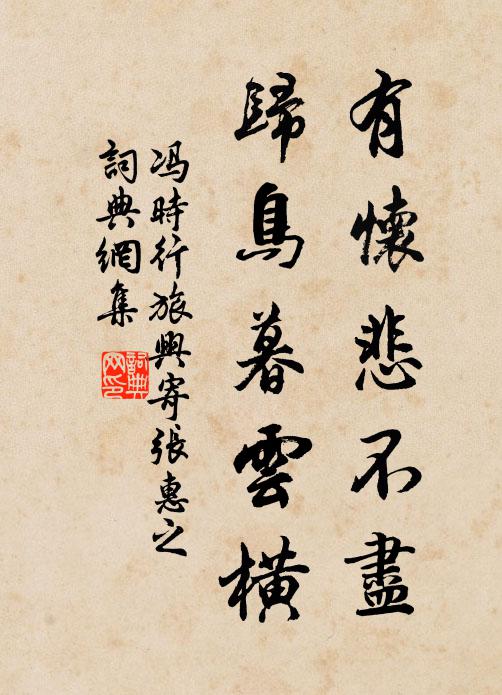 有懷悲不盡
歸鳥暮雲橫
冯時行旅興寄張惠之
詞典網集
詞典网印